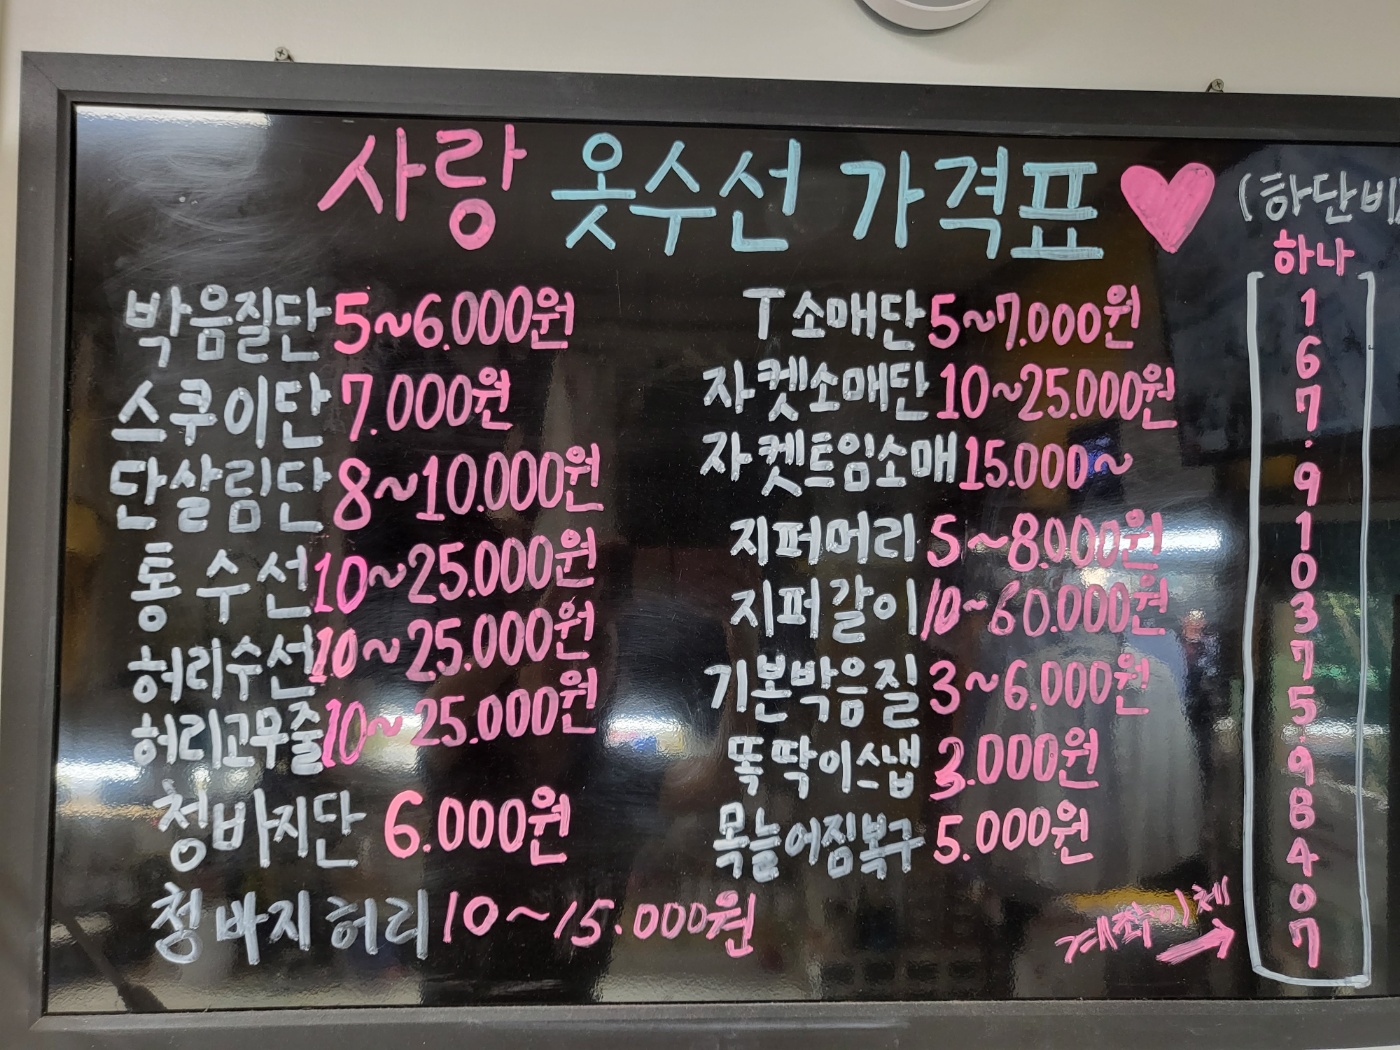 사랑 옷수선 가격표
박음질단 5~6.000원
스쿠이단 7.000원
단살림단 8~10.000원
통수선 10~25.000원
허리수선 10~25.000원
허리고무줄 10~25.000원
청바지단 6.000원
청바지허리 10~15.000원
T소매단 5~7.000원
자켓소매단 10~25.000원
자켓트임소매 15.000~
지퍼머리 5~8.000원
지퍼갈이 10~60.000원
기본박음질 3~6.000원
똑딱이스냅 3.000원
목늘어짐복구 5.000원
계좌이체
(하단비
하나
1
6
7
.
9
1
0
3
7
5
.
9
8
4
0
7